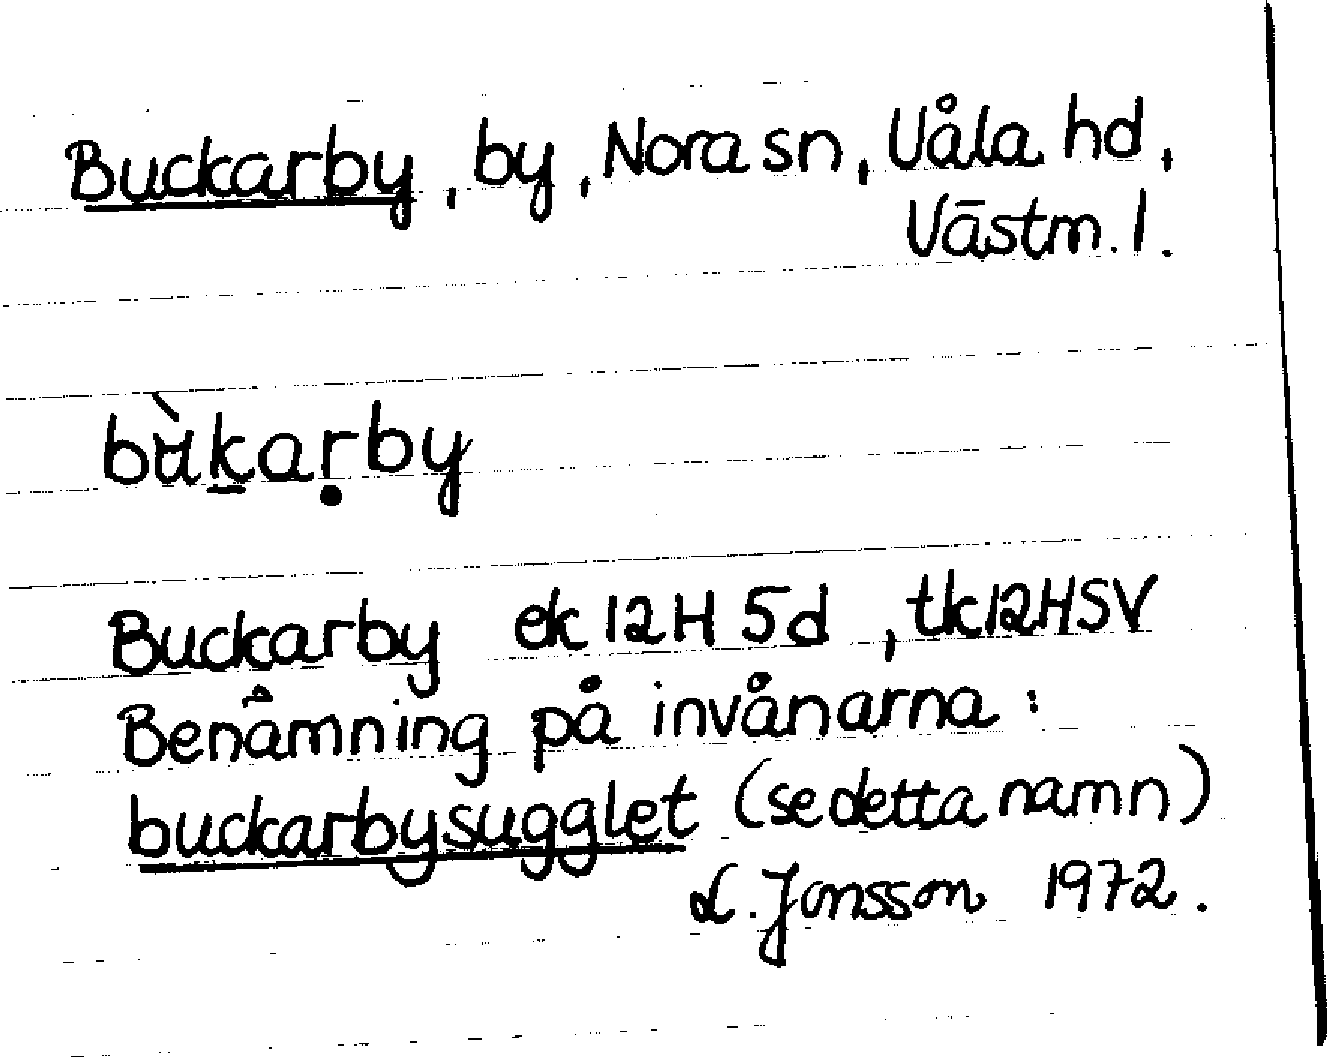 Buckarby, by, Nora sn, Våla hd,
Västm. l.
bʉ̀k̲aṛby
Buckarby ek 12H 5d, tk12HSV
Benämning på invånarna:
buckarbysugglet (se detta namn)
L. Jonsson 1972.